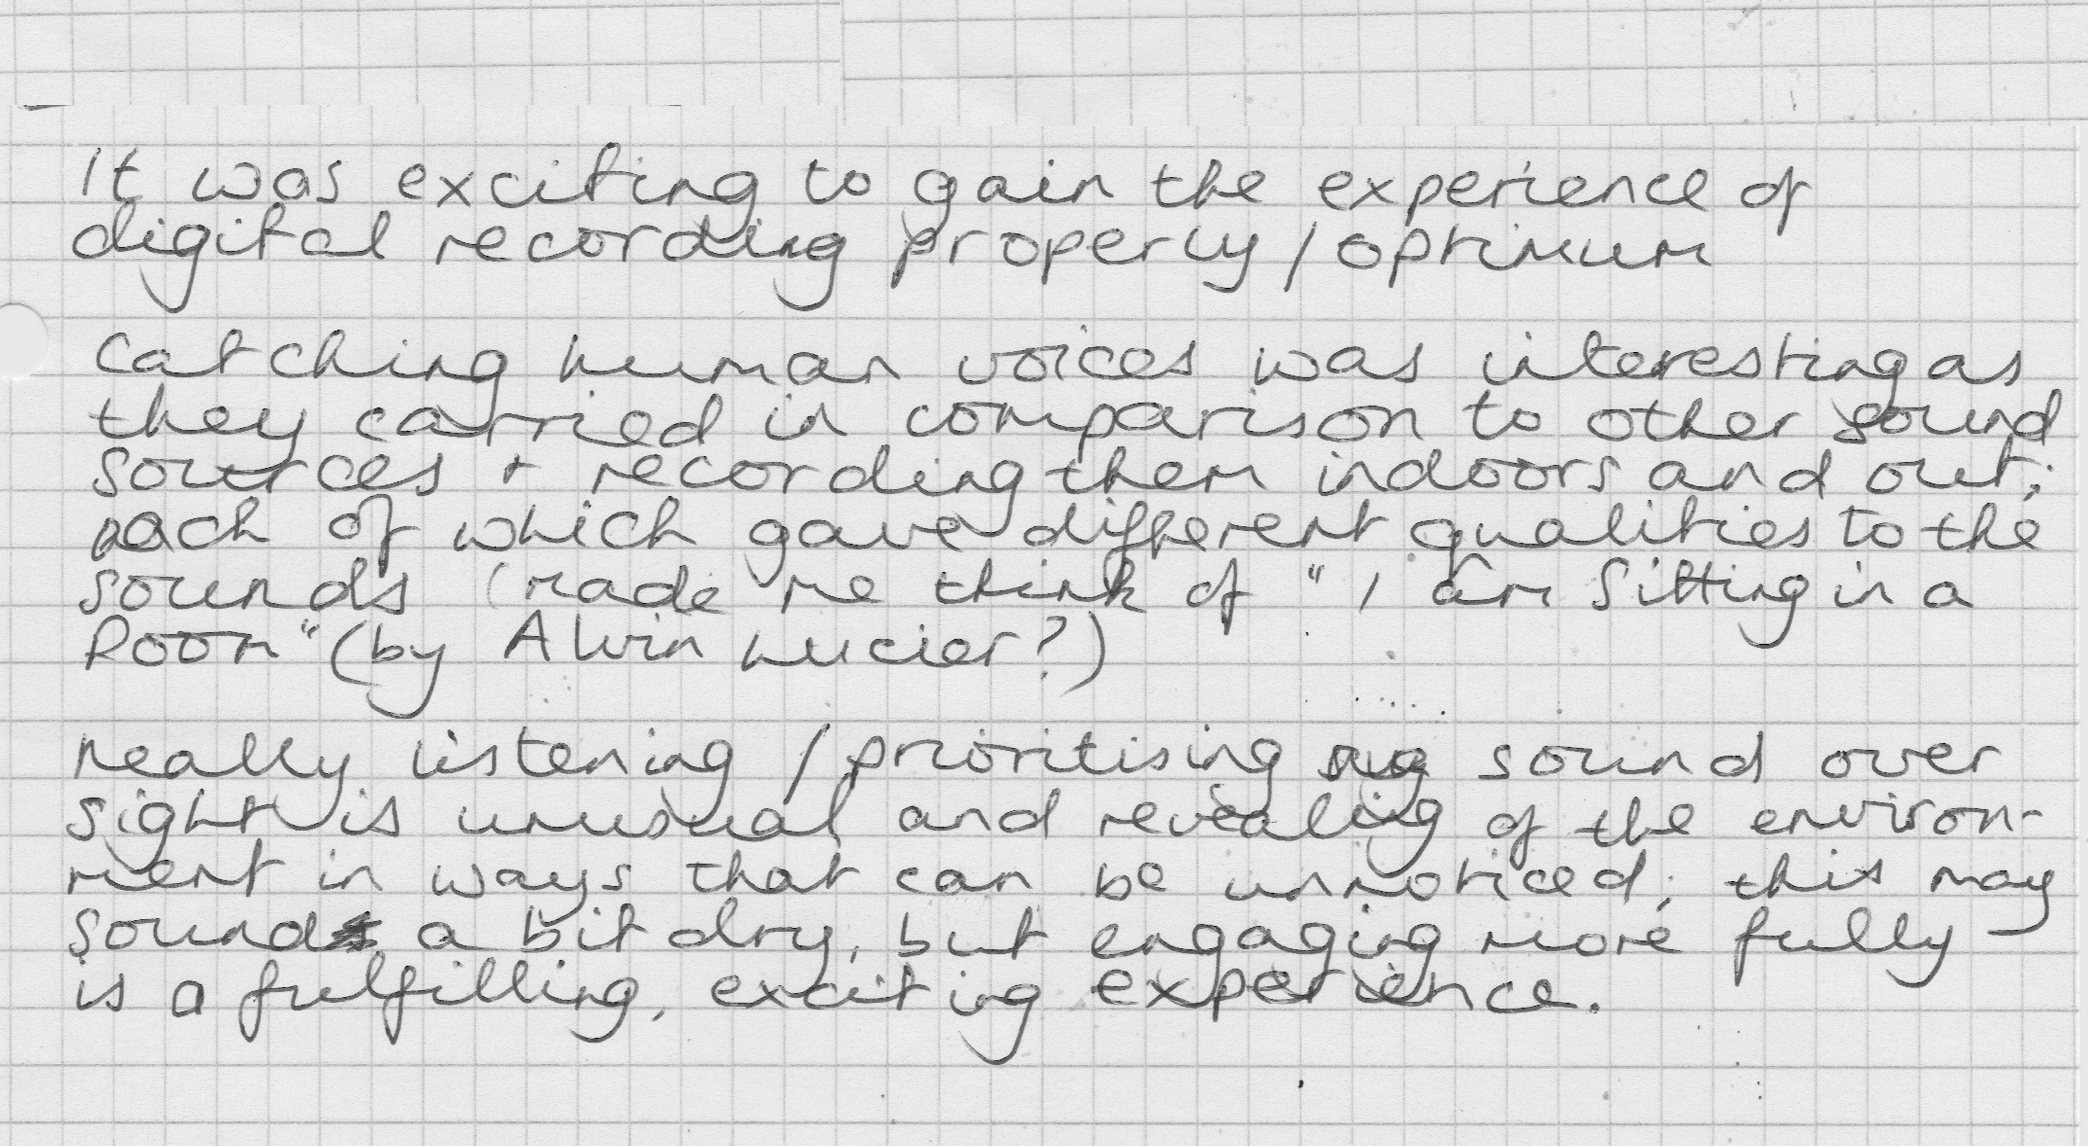 It was exciting to gain the experience of
digital recording properly / optimum
Catching human voices was interesting as
they carried in comparison to other sound
sources + recording them indoors and out;
each of which gave different qualities to the
sounds (made me think of "I am Sitting in a
Room" (by Alvin Lucier?)
Really listening / prioritising sound over
sight is unusual and revealing of the environ-
ment in ways that can be unnoticed; this may
sound a bit dry, but engaging more fully
is a fulfilling, exciting experience.